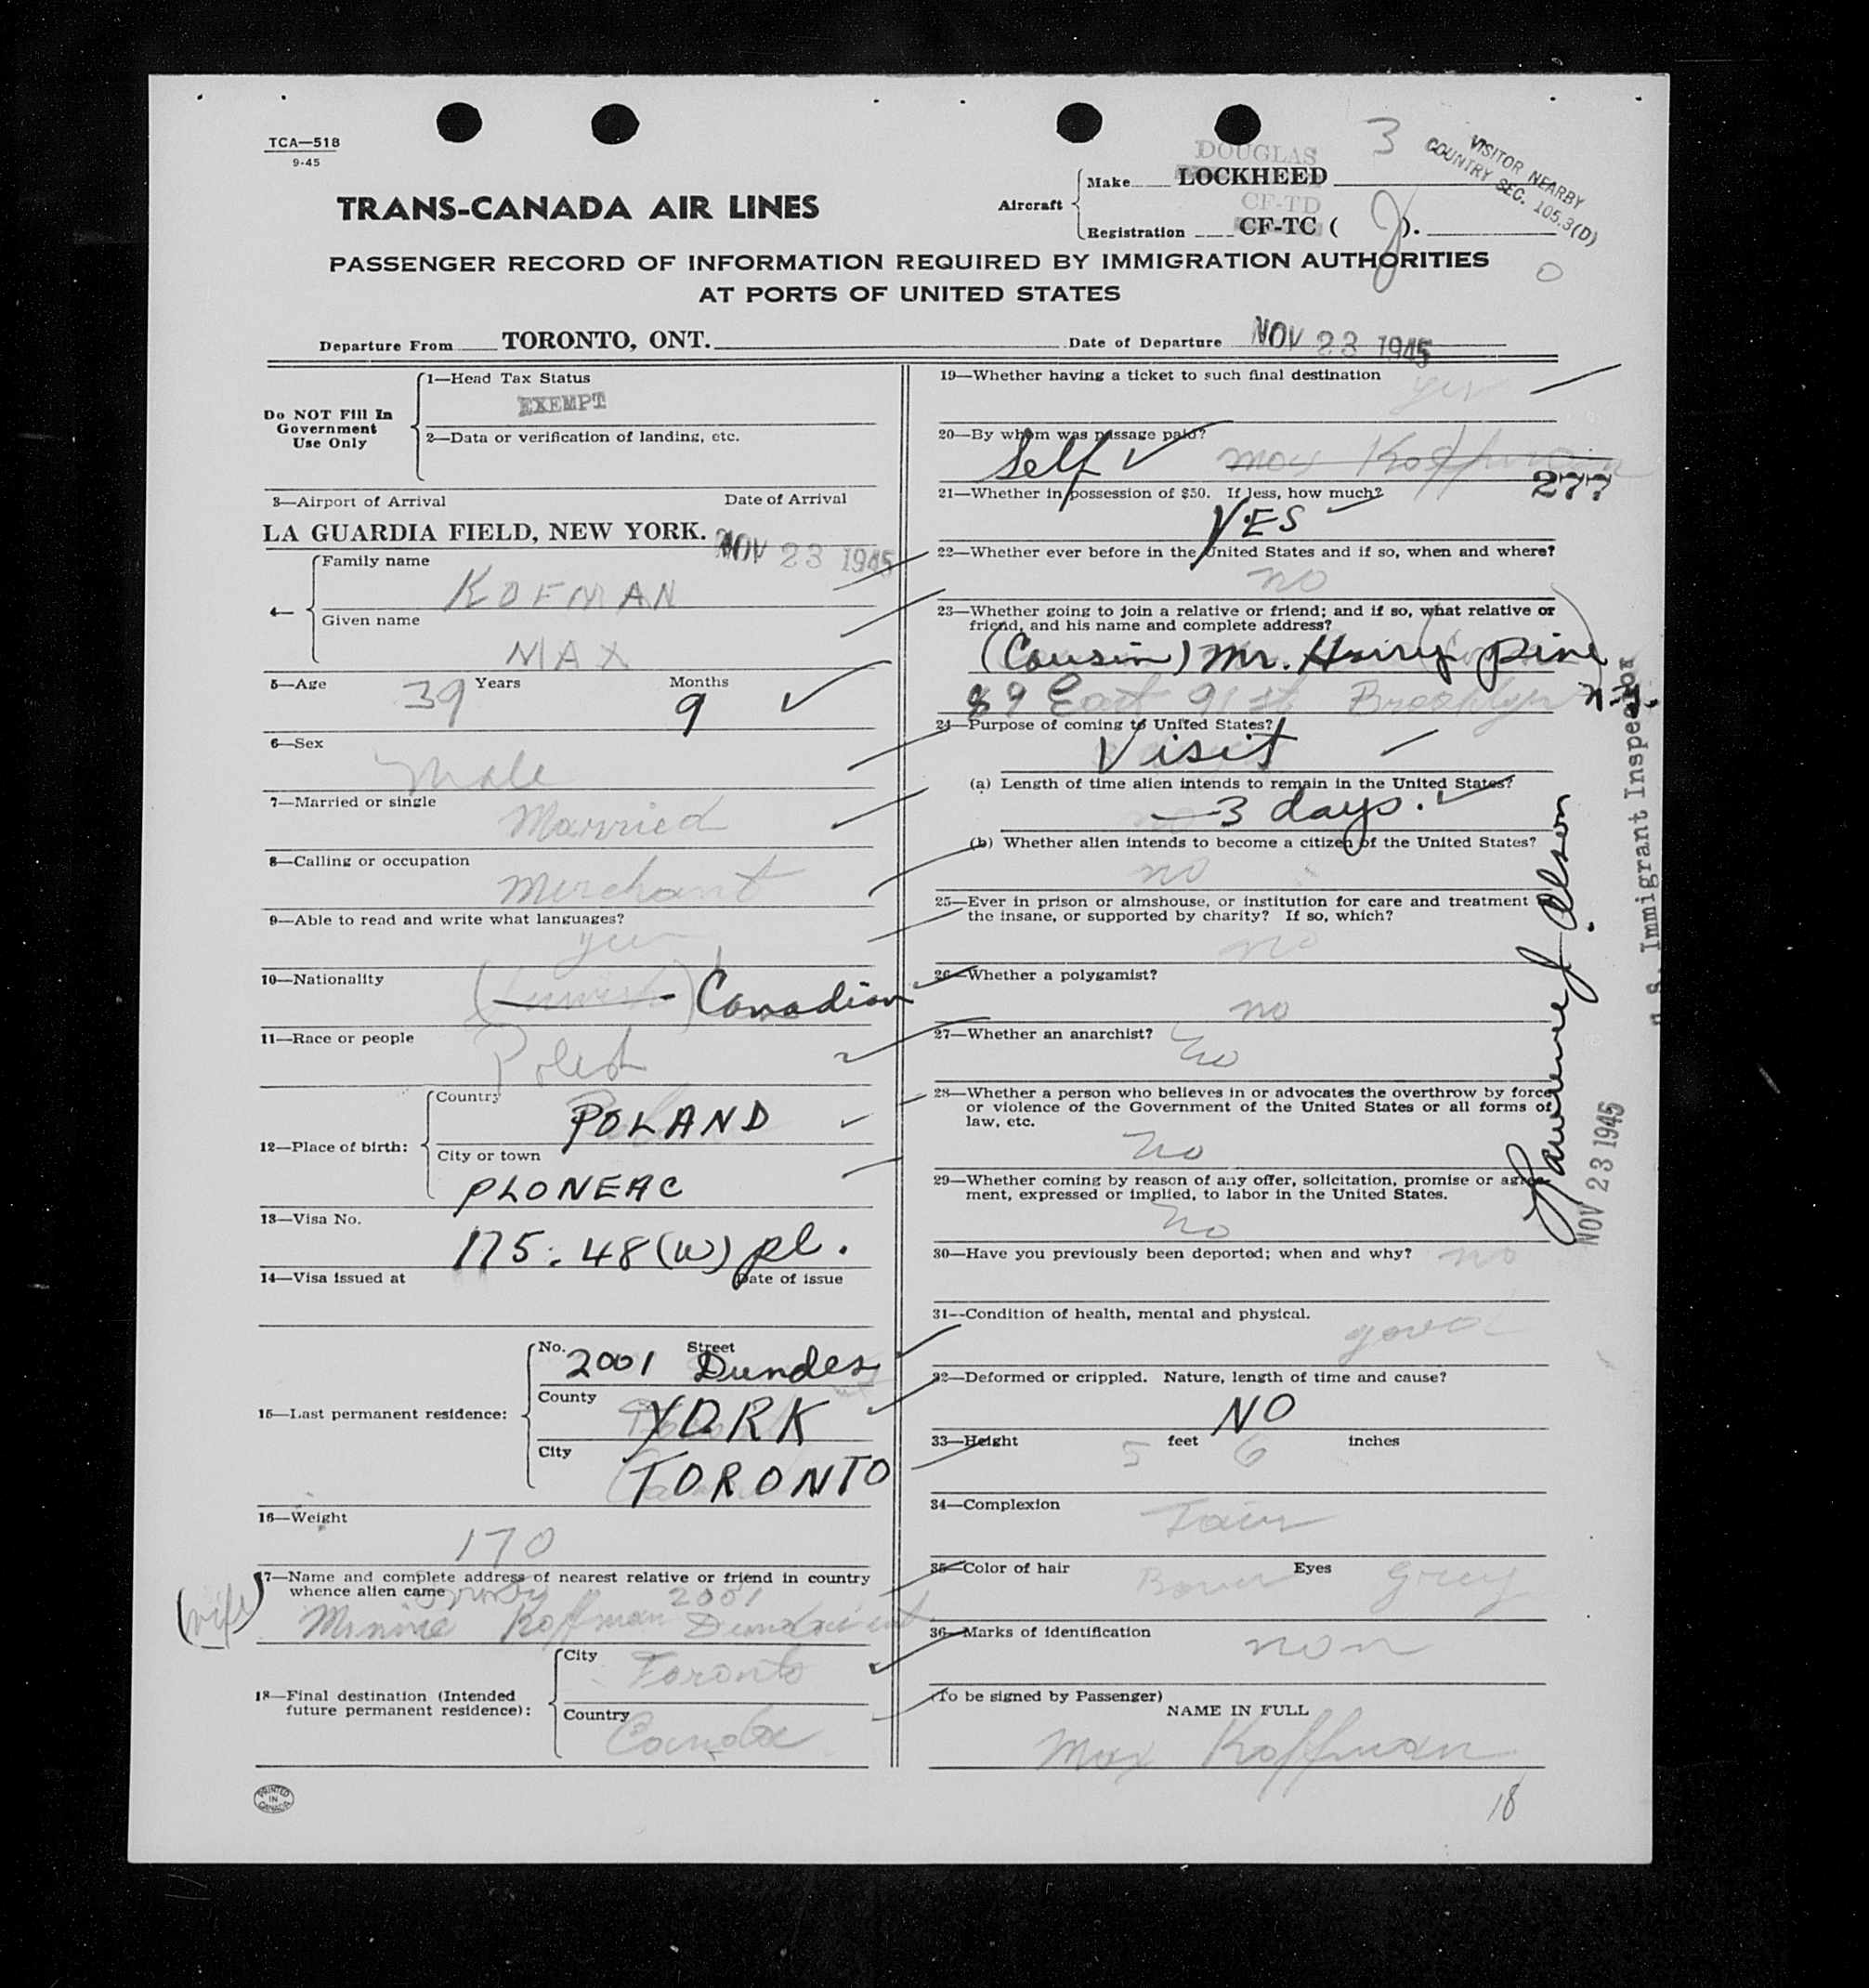 TCA—518
9-45
DOUGLAS
3
VISITOR NEARBY
COUNTRY SEC. 105.3(D)
TRANS-CANADA AIR LINES
Aircraft
Make LOCKHEED
CF-TD
Registration CF-TC ( J ).
PASSENGER RECORD OF INFORMATION REQUIRED BY IMMIGRATION AUTHORITIES
AT PORTS OF UNITED STATES
0
Departure From TORONTO, ONT.
Date of Departure NOV 23 1945
Do NOT Fill In
Government
Use Only
1—Head Tax Status
EXEMPT
2—Data or verification of landing, etc.
3—Airport of Arrival Date of Arrival
LA GUARDIA FIELD, NEW YORK. NOV 23 1945
4—
Family name
KOFMAN
Given name
MAX
5—Age 39 Years Months 9
6—Sex
Male
7—Married or single
Married
8—Calling or occupation
Merchant
9—Able to read and write what languages?
yes
10—Nationality
Canadian
11—Race or people
Polish
12—Place of birth:
Country
POLAND
City or town
PLONEAC
13—Visa No.
175:48(W) pl.
14—Visa issued at Date of issue
15—Last permanent residence:
No. 2001 Street Dundes
County
YORK
City
TORONTO
16—Weight
170
17—Name and complete address of nearest relative or friend in country
whence alien came
(wife)
2001
Minnie Koffman
18—Final destination (Intended
future permanent residence):
City
Toronto
Country
Canada
PRINTED
IN
CANADA
19—Whether having a ticket to such final destination
yes
20—By whom was passage paid?
Self Max Koffman
277
21—Whether in possession of $50. If less, how much?
YES
22—Whether ever before in the United States and if so, when and where?
no
23—Whether going to join a relative or friend; and if so, what relative or
friend, and his name and complete address?
(Cousin) Mr. Harry Pine
89 East 91 st Brooklyn N.Y.
24—Purpose of coming to United States?
Visit
(a) Length of time alien intends to remain in the United States?
3 days.
(b) Whether alien intends to become a citizen of the United States?
no
25—Ever in prison or almshouse, or institution for care and treatment
the insane, or supported by charity? If so, which?
no
26—Whether a polygamist?
no
27—Whether an anarchist?
no
28—Whether a person who believes in or advocates the overthrow by force
or violence of the Government of the United States or all forms of
law, etc.
no
29—Whether coming by reason of any offer, solicitation, promise or agree-
ment, expressed or implied, to labor in the United States.
no
30—Have you previously been deported; when and why? no
31—Condition of health, mental and physical.
good
32—Deformed or crippled. Nature, length of time and cause?
NO
33—Height 5 feet 6 inches
34—Complexion
Fair
35—Color of hair Eyes Grey
36—Marks of identification
non
(To be signed by Passenger)
NAME IN FULL
Max Koffman
18
U. S. Immigrant Inspector
NOV 23 1945